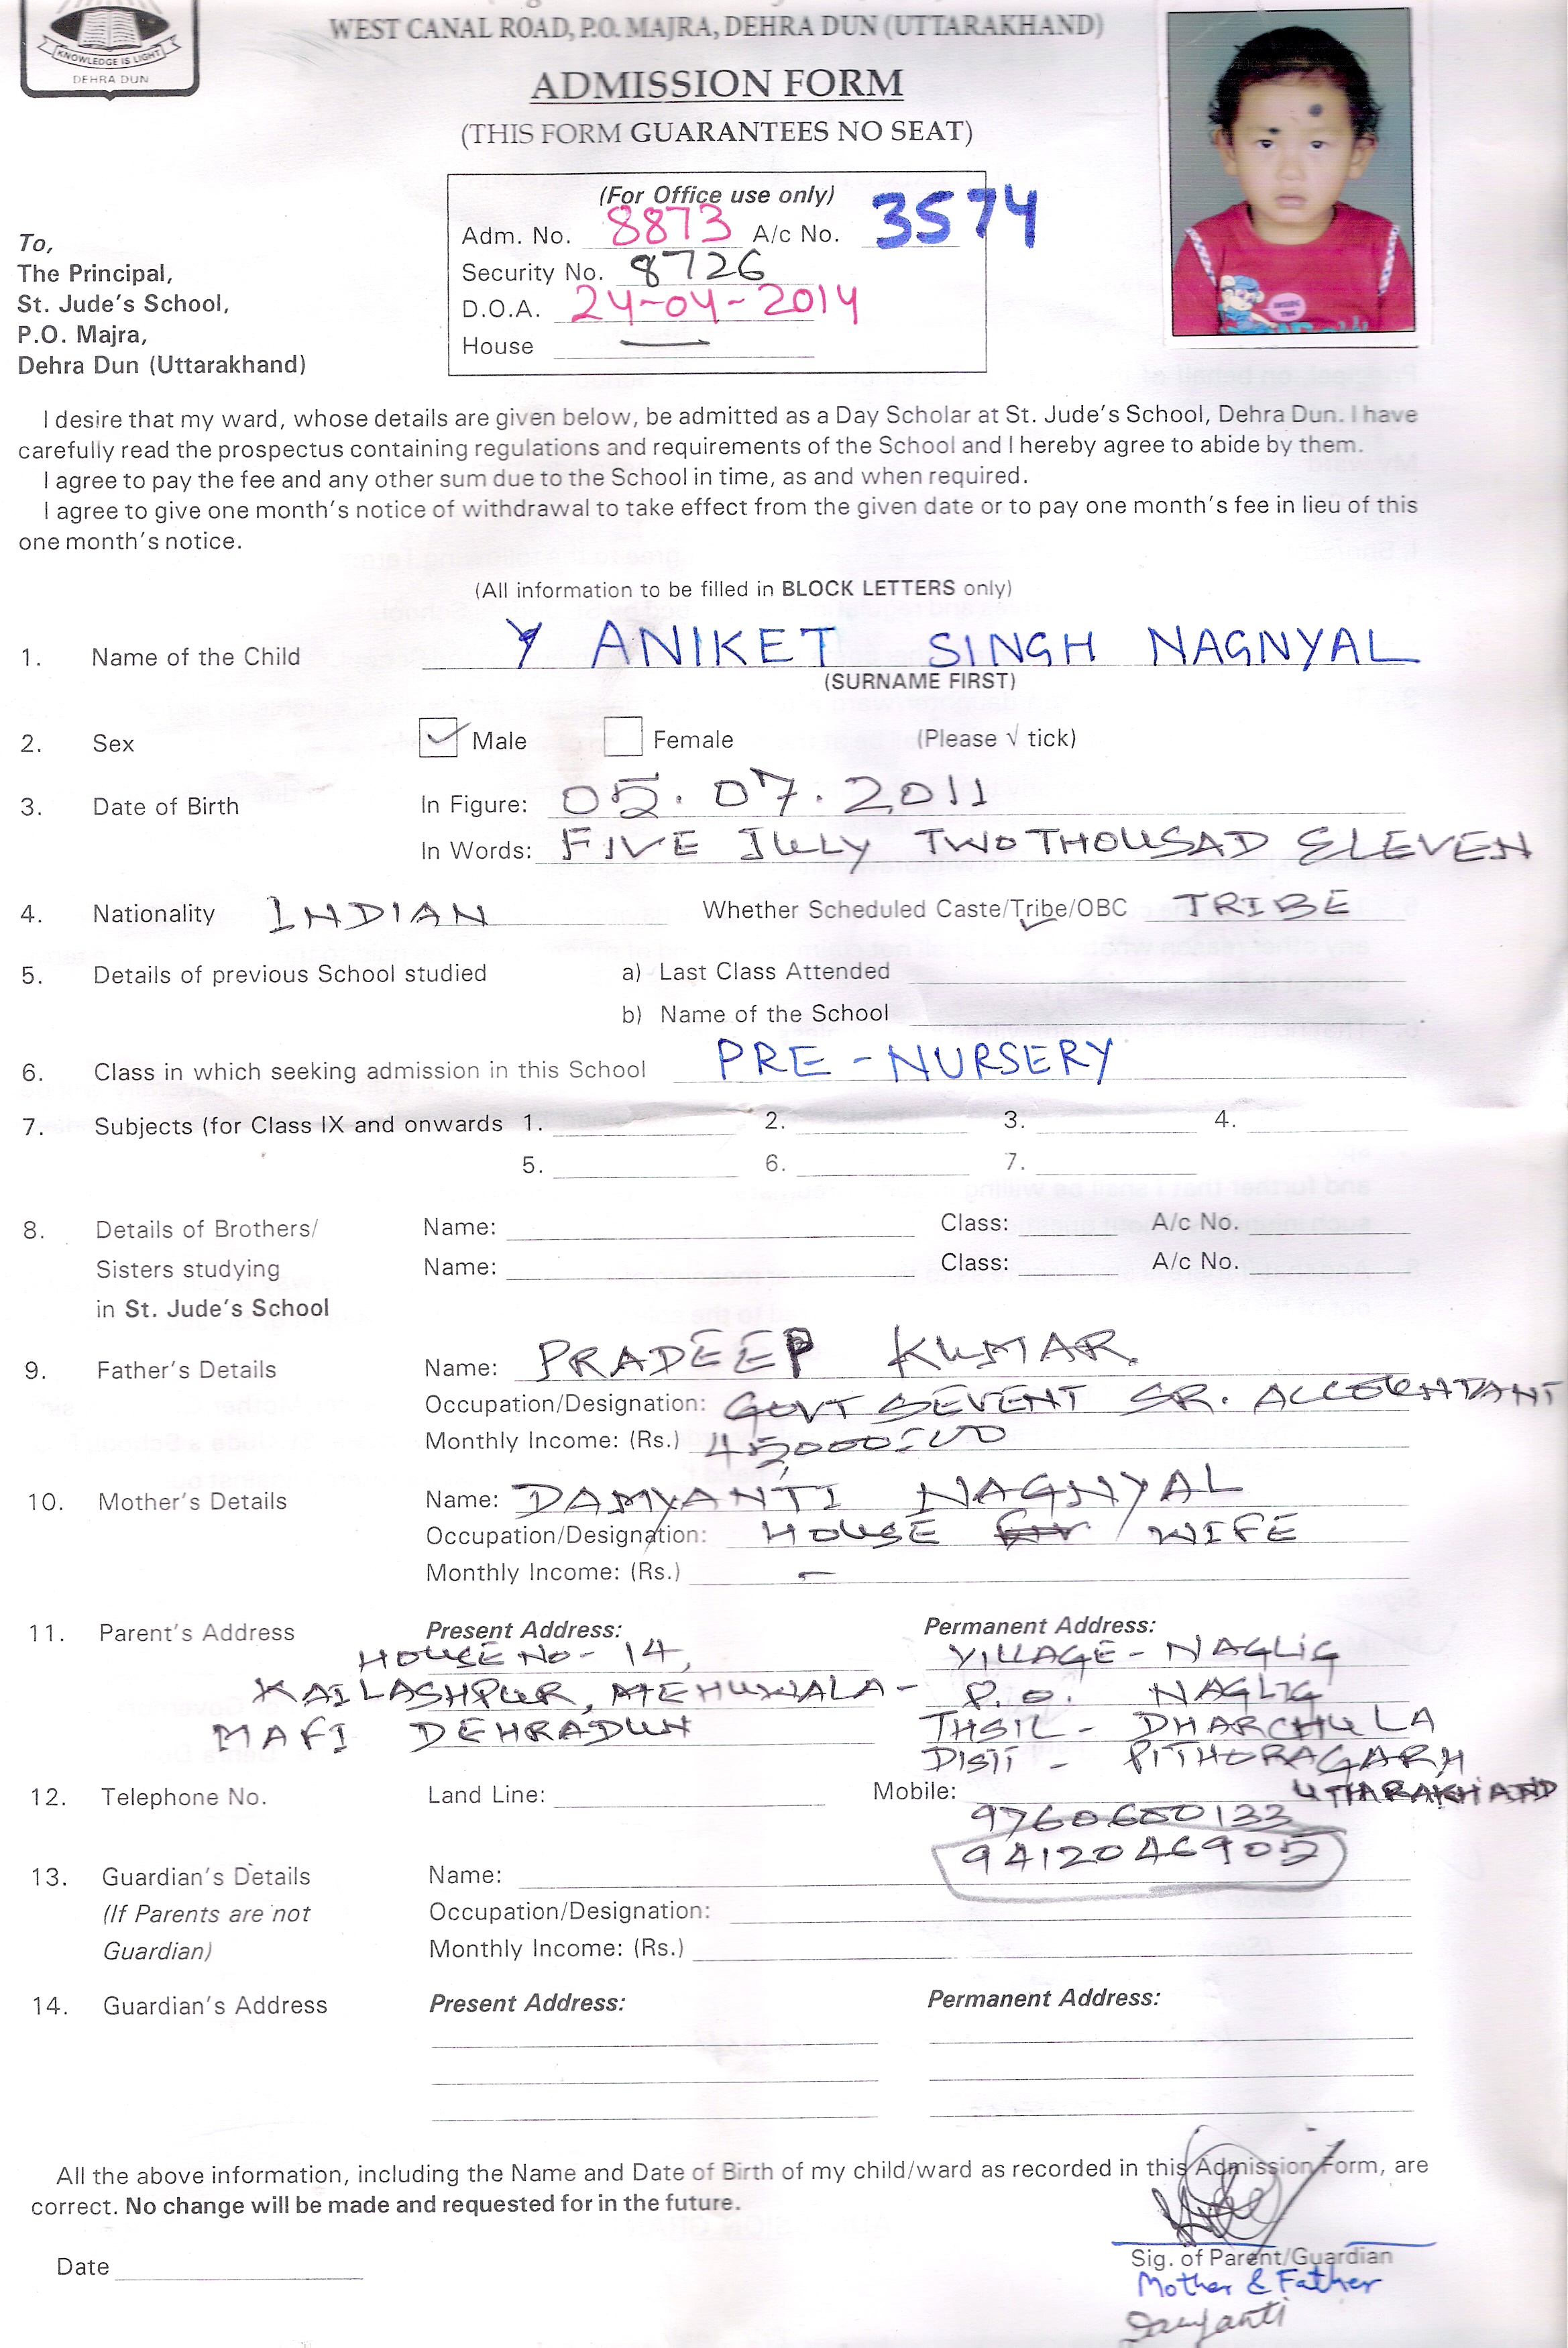 WEST CANAL ROAD, P.O. MAJRA, DEHRA DUN (UTTARAKHAND)
KNOWLEDGE IS LIGHT
DEHRA DUN
ADMISSION FORM
(THIS FORM GUARANTEES NO SEAT)
(For Office use only)
Adm. No. 8873 A/c No. 3574
Security No. 8726
D.O.A. 24-04-2014
House —
To,
The Principal,
St. Jude's School,
P.O. Majra,
Dehra Dun (Uttarakhand)
I desire that my ward, whose details are given below, be admitted as a Day Scholar at St. Jude's School, Dehra Dun. I have
carefully read the prospectus containing regulations and requirements of the School and I hereby agree to abide by them.
I agree to pay the fee and any other sum due to the School in time, as and when required.
I agree to give one month's notice of withdrawal to take effect from the given date or to pay one month's fee in lieu of this
one month's notice.
(All information to be filled in BLOCK LETTERS only)
1. Name of the Child ANIKET SINGH NAGNYAL
(SURNAME FIRST)
2. Sex Male Female (Please √ tick)
3. Date of Birth In Figure: 05.07.2011
In Words: FIVE JULY TWO THOUSAD ELEVEN
4. Nationality INDIAN Whether Scheduled Caste/Tribe/OBC TRIBE
5. Details of previous School studied a) Last Class Attended
b) Name of the School
6. Class in which seeking admission in this School PRE-NURSERY
7. Subjects (for Class IX and onwards 1. 2. 3. 4.
5. 6. 7.
8. Details of Brothers/ Name: Class: A/c No.
Sisters studying Name: Class: A/c No.
in St. Jude's School
9. Father's Details Name: PRADEEP KUMAR.
Occupation/Designation: GOVT SEVENT SR. ACCOUNTANT
Monthly Income: (Rs.) 45000=00
10. Mother's Details Name: DAMYANTI NAGNYAL
Occupation/Designation: HOUSE WIFE
Monthly Income: (Rs.) -
11. Parent's Address Present Address: Permanent Address:
HOUSE No- 14, VILLAGE- NAGLIG
KAILASHPUR, MEHUWALA- P.O. NAGLIG
MAFI DEHRADUN THSIL - DHARCHULA
DISTT - PITHORAGARH
UTTARAKHAND
12. Telephone No. Land Line: Mobile:
9760600133
9412046905
13. Guardian's Details Name:
(If Parents are not Occupation/Designation:
Guardian) Monthly Income: (Rs.)
14. Guardian's Address Present Address: Permanent Address:
All the above information, including the Name and Date of Birth of my child/ward as recorded in this Admission Form, are
correct. No change will be made and requested for in the future.
Date
Sig. of Parent/Guardian
Mother & Father
Damyanti